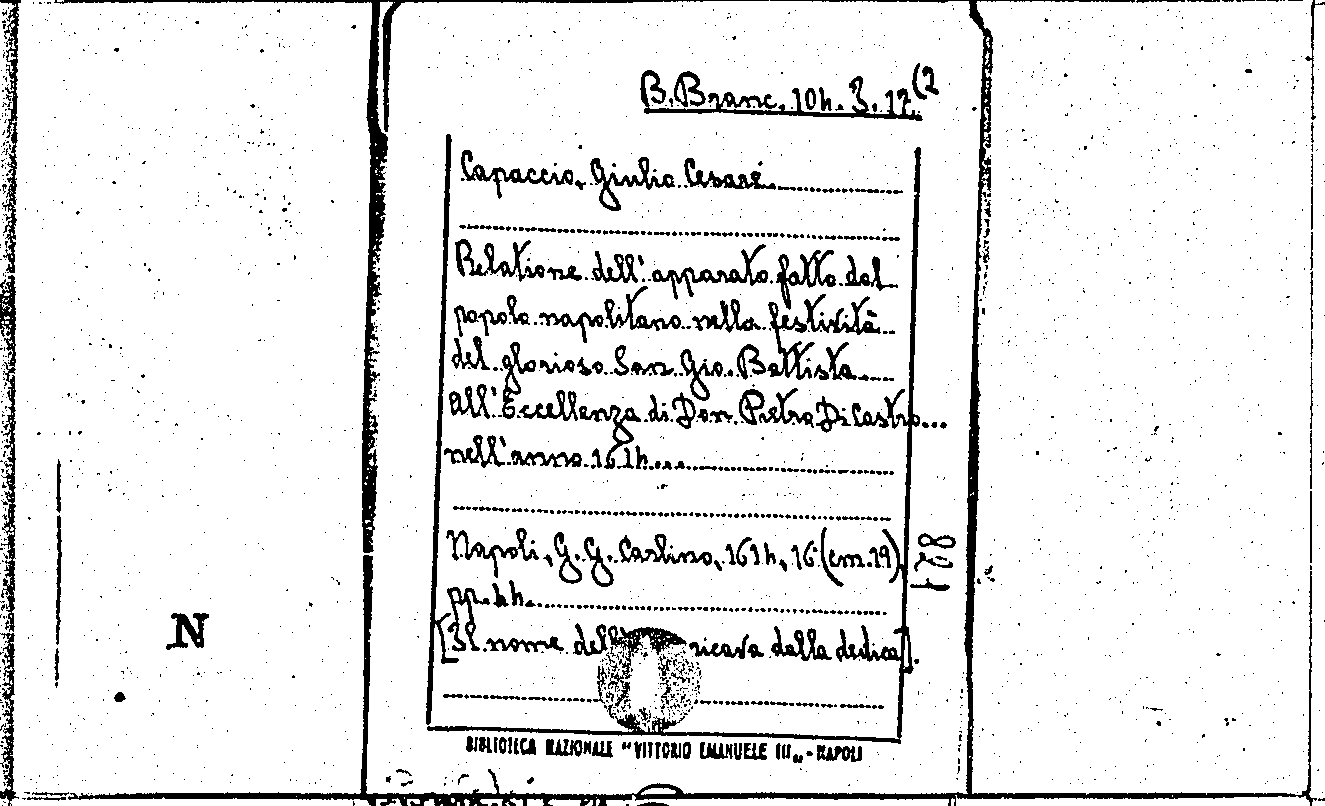 B. Branc. 104. 3. 17(2
Capaccio, Giulio Cesare
Relatione dell'apparato fatto dal
popolo napolitano nella festività
del glorioso San Gio. Battista
all'Eccellenza di Don Pietro Di Castro...
nell'anno 1614...
Napoli, G. G. Carlino, 1614, 16 (cm. 19),
pp. 44.
[Il nome dell' ricava dalla dedica].
N
BIBLIOTECA NAZIONALE "VITTORIO EMANUELE III„ - NAPOLI